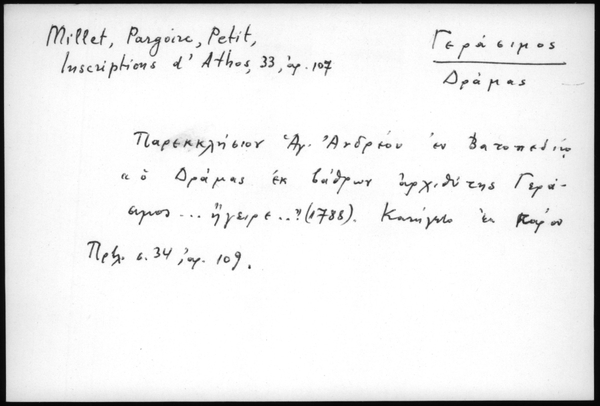 Millet, Pargoire, Petit,
Inscriptions d'Athos, 33, ἀρ. 107
Γεράσιμος
Δράμας
Παρεκκλήσιον Ἁγ. Ἀνδρέου ἐν Βατοπεδίῳ
"ὁ Δράμας ἐκ βάθρων ἀρχιθύτης Γερά-
σιμος ... ἤγειρε..." (1788). Κατήγετο ἐκ Πάρου
Πρβλ. σ. 34, ἀρ. 109.